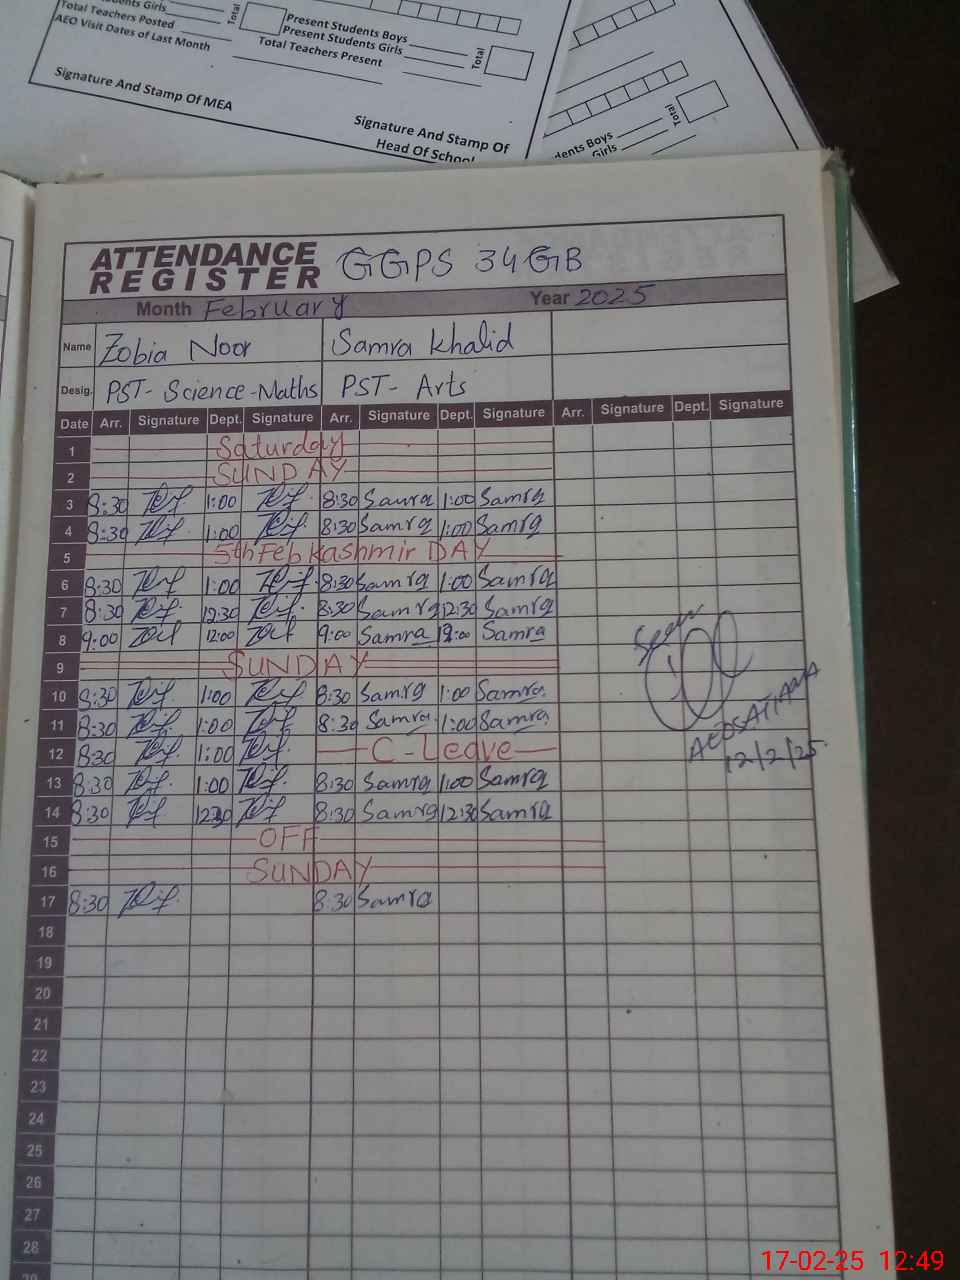 Students Girls
Total Teachers Posted
AEO Visit Dates of Last Month
Total
Present Students Boys
Present Students Girls
Total Teachers Present
Total
Signature And Stamp Of MEA
Signature And Stamp Of
Head Of School
Total
dents Boys
Girls
ATTENDANCE
REGISTER GGPS 34GB
Month February Year 2025
Name Zobia Noor Samra Khalid
Desig. PST- Science-Maths PST- Arts
Date Arr. Signature Dept. Signature Arr. Signature Dept. Signature Arr. Signature Dept. Signature
1 Saturday
2 SUNDAY
3 8:30 1:00 8:30 Samra 1:00 Samra
4 8:30 1:00 8:30 Samra 1:00 Samra
5 5th Feb Kashmir DAY
6 8:30 1:00 8:30 Samra 1:00 Samra
7 8:30 12:30 8:30 Samra 12:30 Samra
8 9:00 12:00 9:00 Samra 12:00 Samra
9 SUNDAY
10 8:30 1:00 8:30 Samra 1:00 Samra
11 8:30 1:00 8:30 Samra 1:00 Samra
12 8:30 1:00 C-Leave
13 8:30 1:00 8:30 Samra 1:00 Samra
14 8:30 12:30 8:30 Samra 12:30 Samra
15 OFF
16 SUNDAY
17 8:30 8:30 Samra
18
19
20
21
22
23
24
25
26
27
28
29
Seen
12/2/25
17-02-25 12:49